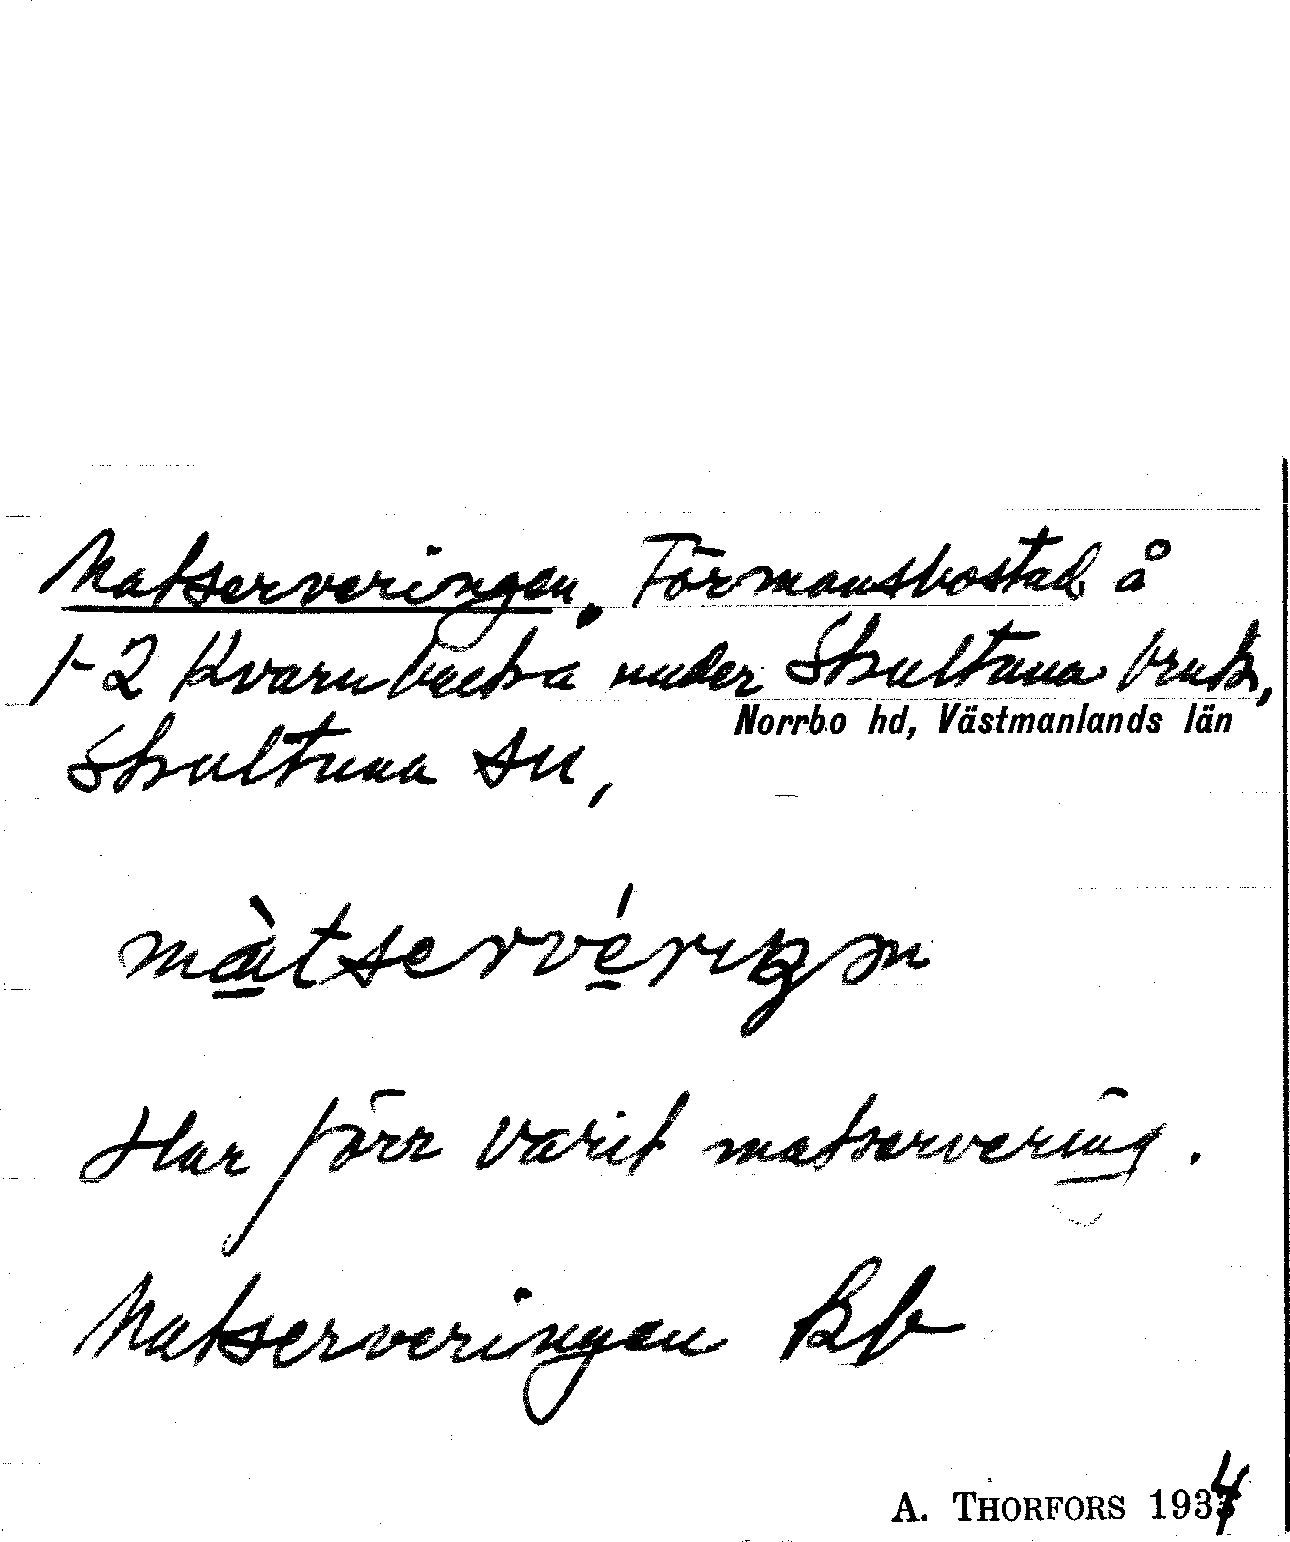 Matserveringen. Förmansbostad å
1-2 Kvarnbacka under Skultuna bruk,
Skultuna sn,
Norrbo hd, Västmanlands län
màtservériŋən
Har förr varit matservering.
Matserveringen Bb
A. THORFORS 1934